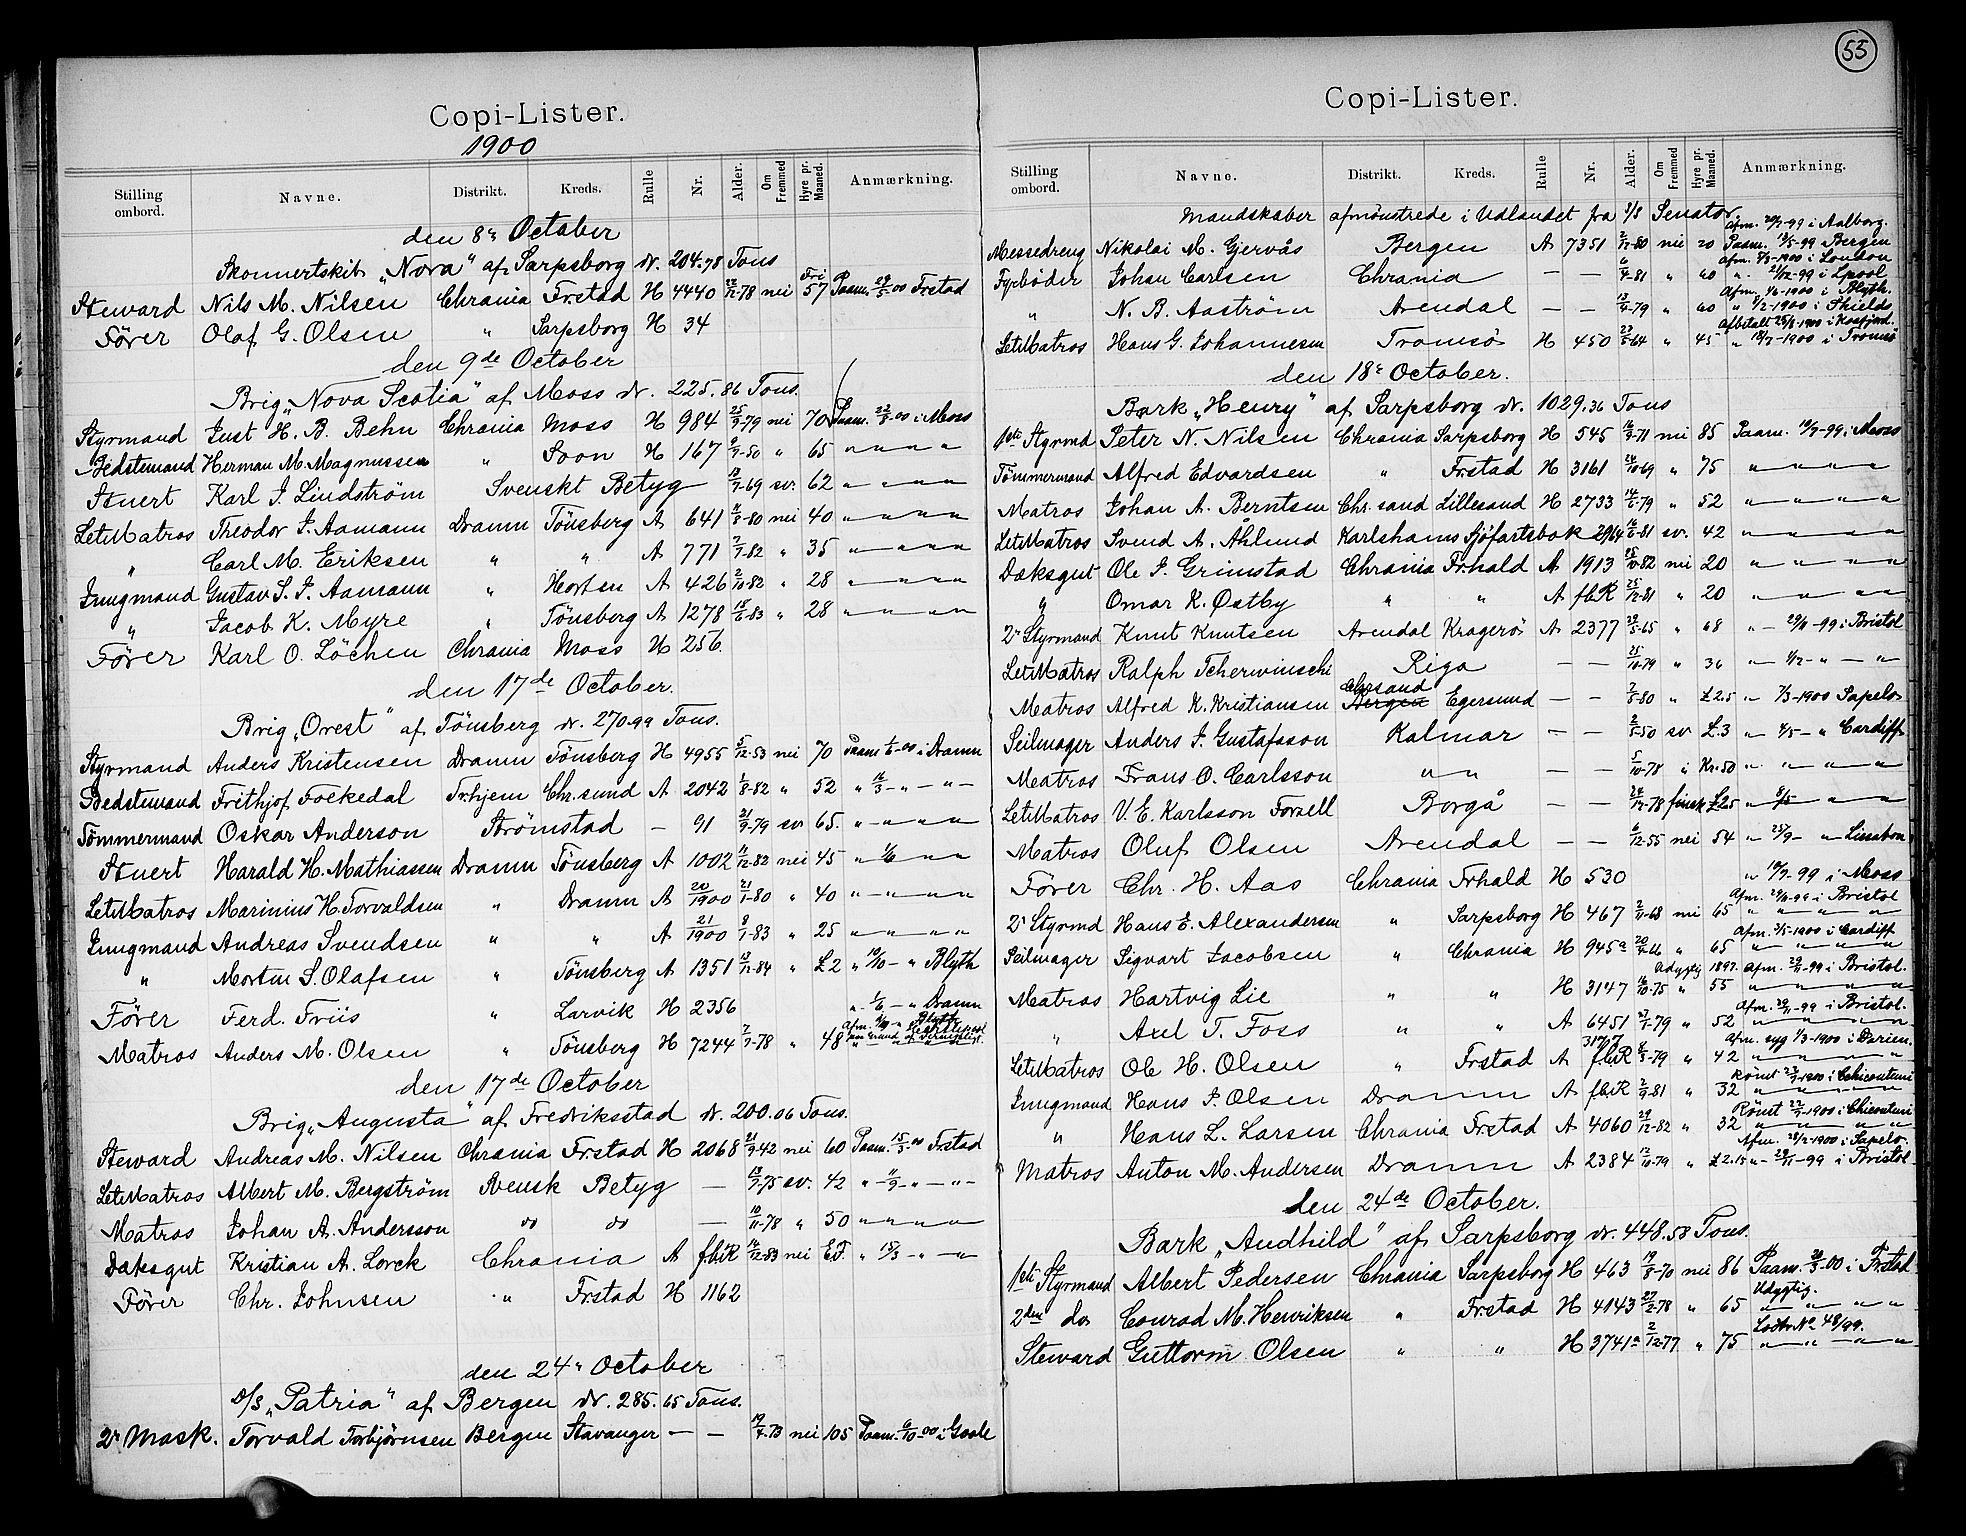 Copi-Lister.
1900
Stilling ombord. Navne. Distrikt. Kreds. Rulle Nr. Alder. Om Fremmed Hyre pr. Maaned. Anmærkning.
den 8' October
Skonnertskib „Nova“ af Sarpsborg dr. 204.78 Tons
Steward Nils M. Nilsen Chrania Frstad H 4440 22/12-78 nei Fri 57 Paam. 29/5-00 Frstad
Fører Olaf G. Olsen " Sarpsborg H 34
den 9de October
Brig „Nova Scotia“ af Moss dr. 225.86 Tons.
Styrmand Just H. B. Behn Chrania Moss H 984 25/9-79 nei 70 Paam. 22/8-00 i Moss
Bedstemand Herman M. Magnussen " Soon H 167 9/9-50 " 65 " — " " "
Stuert Karl J. Lindström Svenskt Betyg 13/7-69 sv. 62 " — " " "
LetMatros Theodor J. Aamann Dramn Tönsberg A 641 11/8-80 nei 40 " — " " "
" Carl M. Eriksen " " A 771 7/7-82 " 35 " — " " "
Jungmand Gustav S. J. Aamann " Horten A 426 2/10-82 " 28 " — " " "
" Jacob K. Myre " Tönsberg A 1278 15/6-83 " 28 " — " " "
Fører Karl O. Löchen Chrania Moss H 256
den 17de October.
Brig „Orest“ af Tönsberg dr. 270.99 Tons.
Styrmand Anders Kristensen Dramn Tönsberg H 4955 5/12-53 nei 70 Paam 1/6-00 i Dramn
Bedstemand Frithjof Fockedal Trhjem Chr.sund A 2042 1/8-82 " 52 " 16/3 - " - " -
Tömmermand Oskar Anderson Strömstad — 91 21/9-79 sv 65. " — " " "
Stuert Harald H. Mathiassen Dramn Tönsberg A 1002 11/12-82 nei 45 " 1/6 — " — "
LetMatros Marinius H. Torvaldsen " Dramn A 20/1900 21/1-80 " 40 " — " — " — "
Jungmand Andreas Svendsen " " A 21/1900 8/1-83 " 25 " — " — " — "
" Morten S. Olafsen " Tönsberg A 1351 13/12-84 " £2 " 19/10 — " Blyth
Fører Ferd. Friis " Larvik H 2356 " 1/6 — " Dramn
Matros Anders M. Olsen " Tönsberg H 7244 7/7-78 " 48
den 17de October
Brig „Augusta“ af Fredriksstad dr. 200.06 Tons.
Steward Andreas M. Nilsen Chrania Frstad H 2068 21/9-42 nei 60 Paam. 15/3-00 Frstad
LetMatros Albert M. Bergström Svensk Betyg — 13/7-75 sv. 42 " 11/9 - " — " -
Matros Johan A. Andersson do do — 10/11-78 " 50 " — " — " — "
Daksgut Kristian A. Lorck Chrania A fbiR 16/12-83 nei E.F. " 15/3 - " — "
Fører Chr. Johnsen " Frstad H 1162
den 24' October
D/S „Patria“ af Bergen dr. 285.65 Tons.
2' Mask. Torvald Torbjörnsen Bergen Stavanger — — 19/7-73 nei 105 Paam. 6/10-00 i Goole
55
Copi-Lister.
Stilling ombord. Navne. Distrikt. Kreds. Rulle Nr. Alder. Om Fremmed Hyre pr. Maaned. Anmærkning.
Mandskaber afmönstrede i Udlandet fra D/S Senator
Afm. 20/7-99 i Aalborg.
Messedreng Nikolai M. Gjervås Bergen A 7351 2/11-80 nei 20 Paam. 13/5-99 i Bergen
Afm. 3/3-1900 i London
Fyrbøder Johan Carlsen Chrania — — 6/4-81 " 60 " 21/12-99 i Lpool
Afm. 1/6-1900 i Blyth.
" N. B. Aaström Arendal — — 13/4-79 " 60 " 1/2-1900 i Shields
Afbetalt 25/8-1900 i Kosfjord.
LetMatros Hans G. Johannesen Tromsö H 450 23/5-64 " 45 " 18/7-1900 i Tromsö
den 18' October.
Bark „Henry“ af Sarpsborg dr. 1029.36 Tons
1ste Styrmd Peter N. Nilsen Chrania Sarpsborg H 545 16/9-71 nei 85 Paam. 19/9-99 i Moss
Tömmermand Alfred Edvardsen " Frstad H 3161 24/10-69 " 75 " — " " "
Matros Johan A. Berntsen Chr.sand Lillesand H 2733 14/6-79 " 52 " — " " "
LetMatros Svend A. Åhlund Karlshams Sjöfartsbok 2964 16/6-81 sv. 42 " — " " "
Dæksgut Ole J. Grimstad Chrania Frhald A 1913 25/10-82 nei 20 " — " " "
" Omar K. Østby " " A fbiR 25/12-81 " 20 " — " " "
2' Styrmand Knut Knutsen Arendal Kragerö A 2377 29/5-65 " 68 " — 29/11-99 i Bristol
LetMatros Ralph Tcherwinschi Riga — — 25/10-79 " 36 " — 4/12 - " — "
Matros Alfred K. Kristiansen Chrsand Egersund — — 7/8-80 " £2.5 " — 7/3-1900 Sapelo
Seilmager Anders J. Gustafsson Kalmar — — 2/5-50 sv £.3 " — 4/5 - " Cardiff
Matros Frans O. Carlsson " " — — 5/10-78 " Kr.50 " " — " — "
LetMatros V. E. Karlsson Forsell Borgå — — 24/12-78 finsk £25 " 8/5 — " — "
Matros Oluf Olsen Arendal — — 6/12-55 nei 54 " 25/9 - " Lissabon
Fører Chr. H. Aas Chrania Frhald H 530 " 19/9-99 i Moss
Afm. 29/11-99 i Bristol
2' Styrmd Hans E. Alexandersen " Sarpsborg H 467 2/11-68 nei 65 " " — " — "
Afm. 3/5-1900 i Cardiff
Seilmager Sigvart Jacobsen " Chrania H 945a 20/9-66 " 65 " — " — "
Udygtig 1897. Afm. 29/11-99 i Bristol.
Matros Hartvig Lie " " H 3147 16/10-75 " 55 " — " — " — "
Afm. 29/11-99 i Bristol.
" Axel T. Foss " " A 6451 27/1-79 " 52 " — " — " — "
3177 Afm. syg 1/3-1900 i Darien.
LetMatros Ole H. Olsen " Frstad A fbiR 8/3-79 " 42 " — " — " — "
Römt 23/7-1900 i Chicoutimi
Jungmand Hans J. Olsen Dramn A fbiR 2/9-81 " 32 " — " — " — "
Römt 22/7-1900 i Chicoutimi
" Hans L. Larsen Chrania Frstad A 4060 29/12-82 " 32 " " " "
Afm. 28/2-1900 i Sapelo.
Matros Anton M. Andersen Dramn A 2384 12/10-79 " £2.15 " — 29/11-99 i Bristol
den 24de October.
Bark „Audhild“ af Sarpsborg dr. 448.58 Tons.
1ste Styrmand Albert Pedersen Chrania Sarpsborg H 463 19/8-70 nei 86 Paam. 28/3-00 i Frstad
Udygtig.
2den do Conrad M. Henriksen " Frstad H 4143 27/2-78 " 65 " — " — " "
Lodtr. No 48/99.
Steward Guttorm Olsen " " H 3741a 2/12-77 " 75 " — " — "